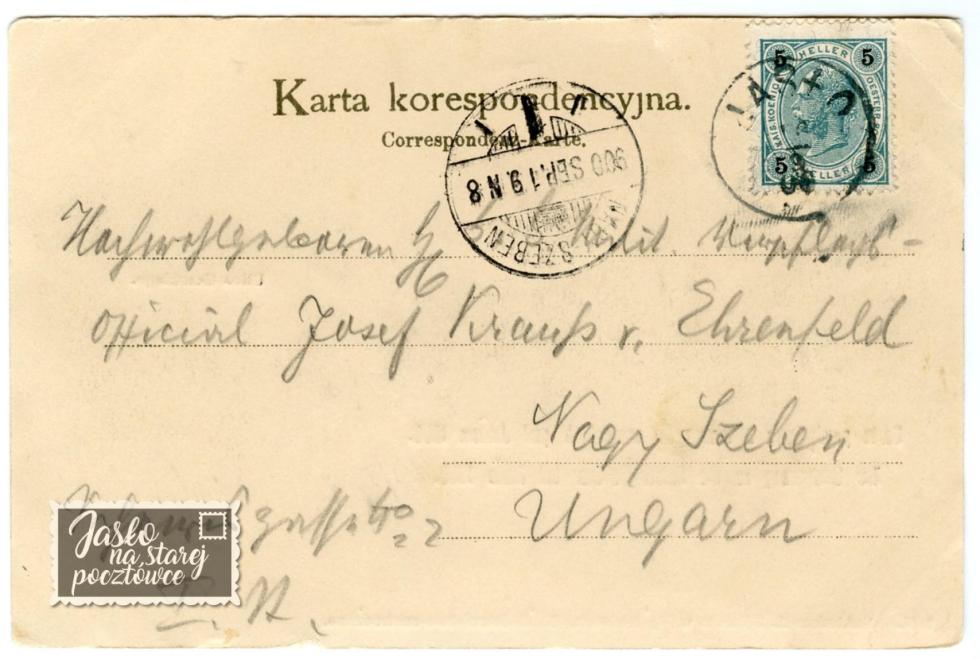 Karta korespondencyjna.
Correspondenz-Karte.
5 HELLER 5
KAIS. KOENIGL. OESTERR.
5 HELLER 5
JASŁO
900 SEP. 19. N 8
NAGY-SZEBEN
Hochwohlgeboren H
official Josef Krauß v. Ehrenfeld
Nagy Szeben
Ungarn
Jasło
na starej
pocztówce